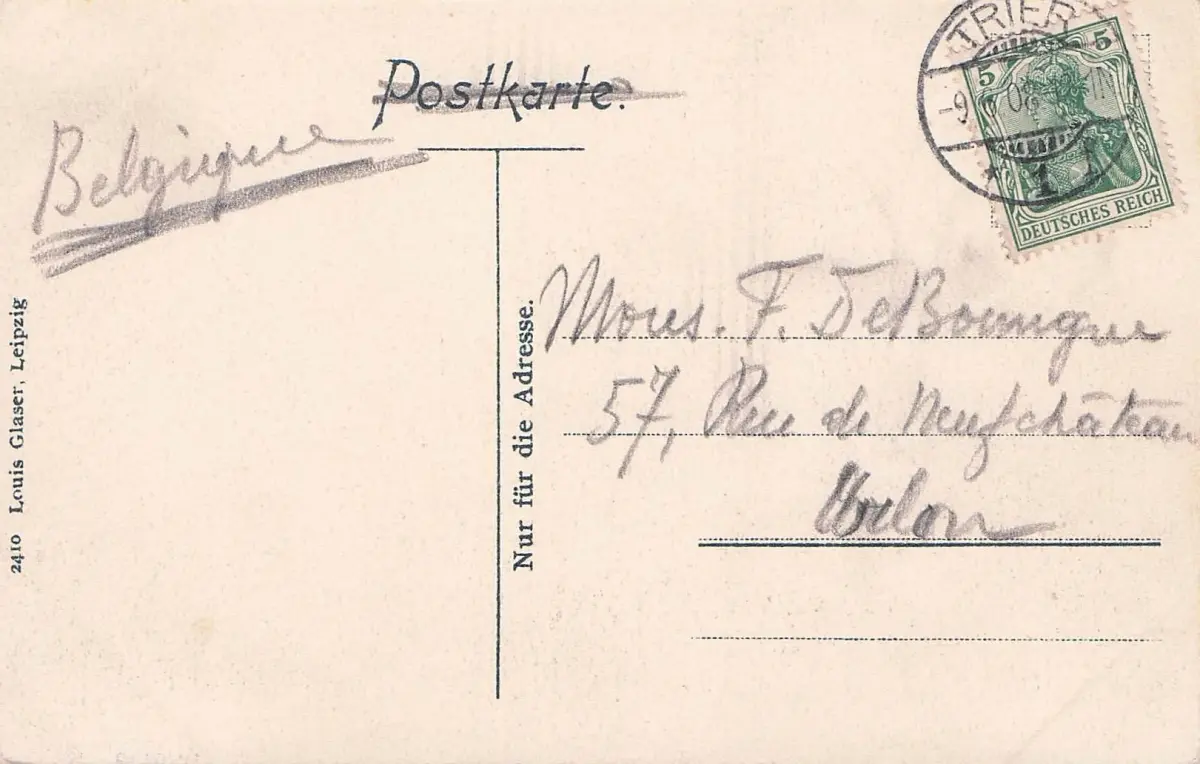 TRIER
-9. 08 1N
* 1
5 5
DEUTSCHES REICH
Postkarte.
Belgique
2410 Louis Glaser, Leipzig
Nur für die Adresse.
Mons. F. DeBoungne
57, Rue de Neufchâteau
Arlon